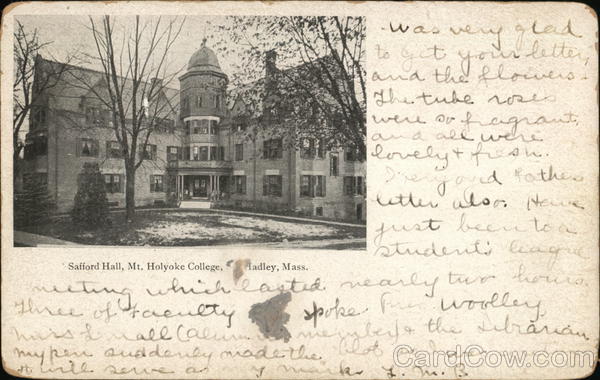 Was very glad
to get your letter,
and the flowers.
The tube roses
were so fragrant,
and all were
lovely & fresh.
letter also. Have
just been to a
students league
Safford Hall, Mt. Holyoke College, Hadley, Mass.
meeting which lasted nearly two hours.
Three of Faculty spoke Pres Woolley
Mrs (alumnae member) & the Librarian
my pen suddenly made the blot
& will serve as my mark L. M. B.
CardCow.com